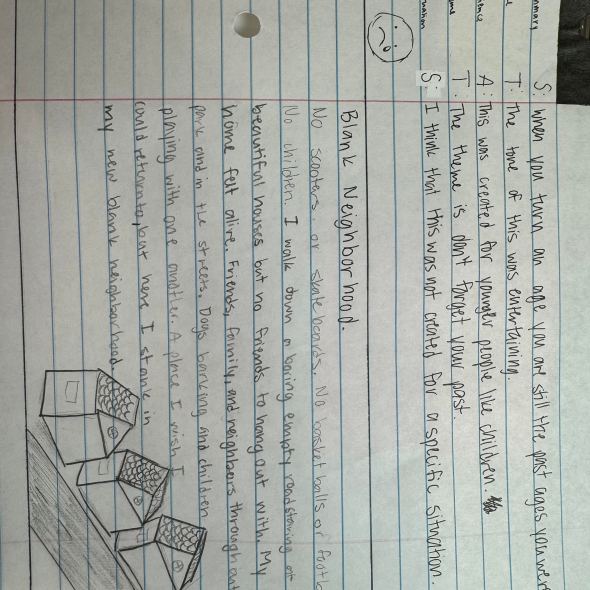 S: When you turn an age you are still the past ages you were
T: The tone of this was entertaining.
A: This was created for younger people like children.
T: The theme is don't forget your past.
S: I think that this was not created for a specific situation.
Blank Neighborhood.
No scooters or skateboards. No basket balls or
No children. I walk down a boring empty road staring at
beautiful houses but no friends to hang out with. My
home felt alive. Friends, family, and neighbors throughout
park and in the streets. Dogs barking and children
playing with one another. A place I wish I
could return to, but here I stank in
my new blank neighborhood.